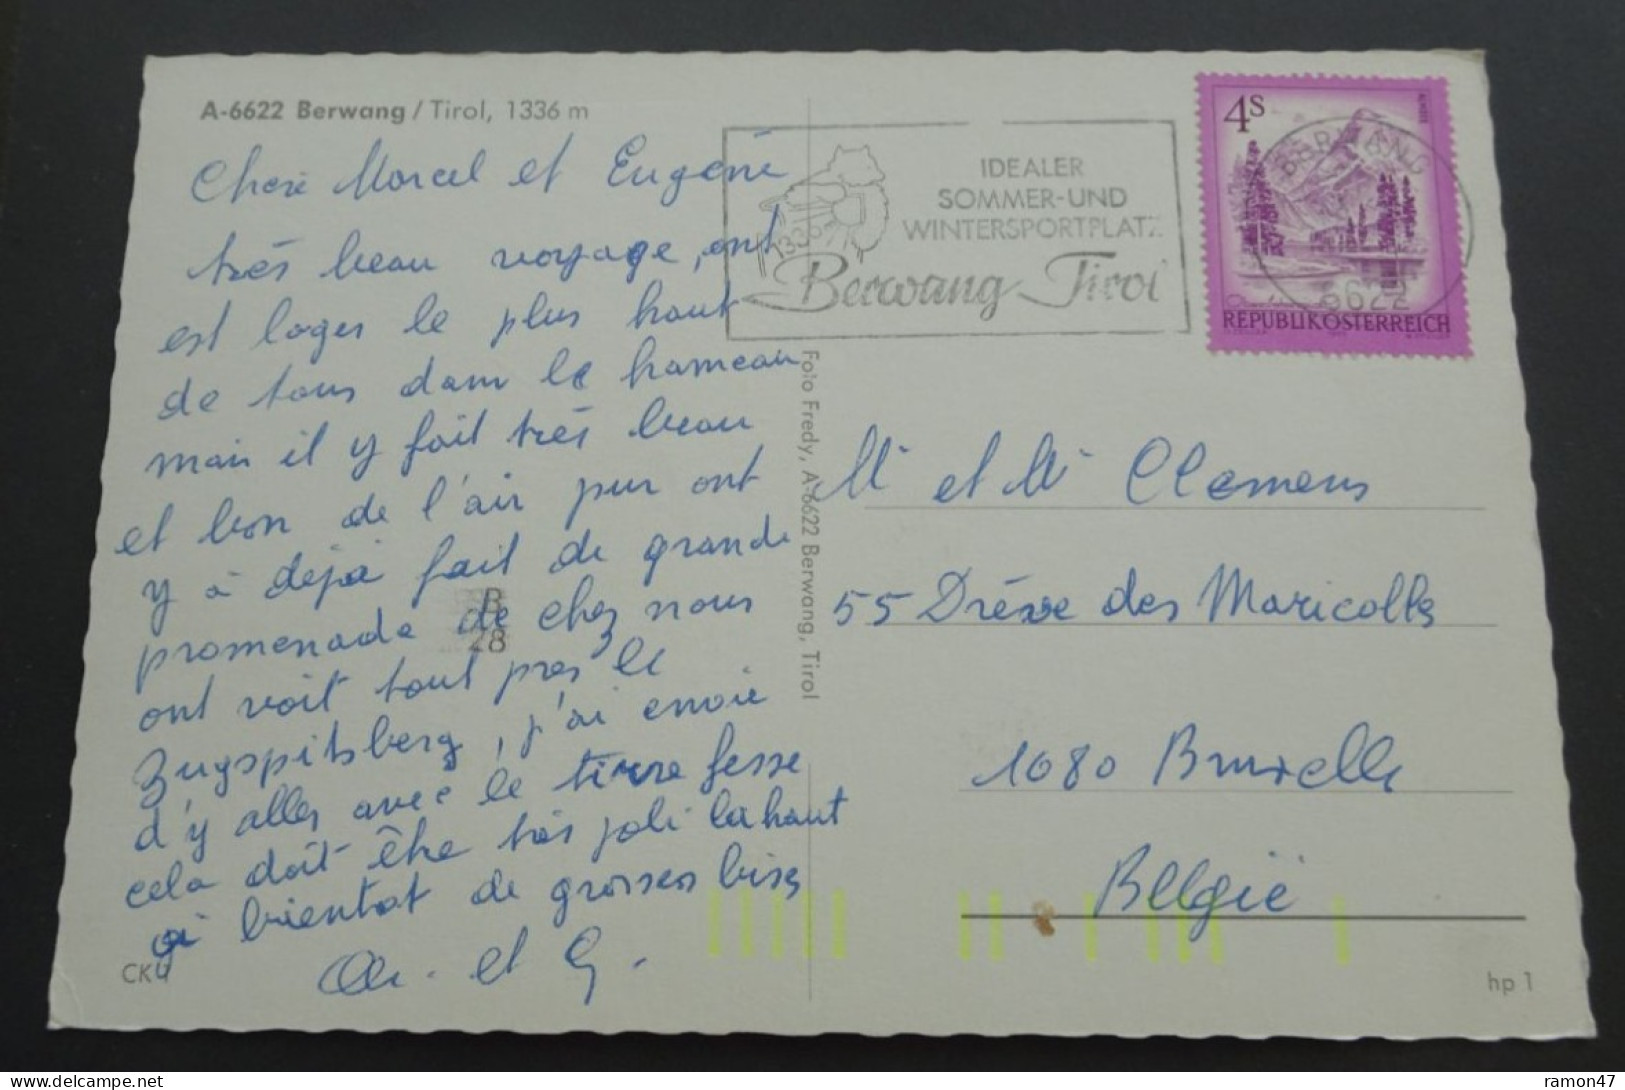 A-6622 Berwang / Tirol, 1336 m
Cheré Marcel et Eugéné
très beau voyage, ont
est loger le plus haut
de tous dans le hameau
mais il y fait très beau
et bon de l'air pur ont
y à déjà fait de grande
promenade de chez nous
ont voit tout pres le
Zugspitsberg, j'ai envie
d'y aller avec le tirre fesse
cela doit être très joli lahaut
a bientot de grosses bises
et G.
CK
B
28
IDEALER
SOMMER-UND
WINTERSPORTPLATZ
Berwang Tirol
4S
BERWANG
6622
REPUBLIK ÖSTERREICH
Foto Fredy, A-6622 Berwang, Tirol
Mr et Me Clemens
55 Drève des Maricolles
1080 Bruxelles
Belgïë
hp 1
ramon47